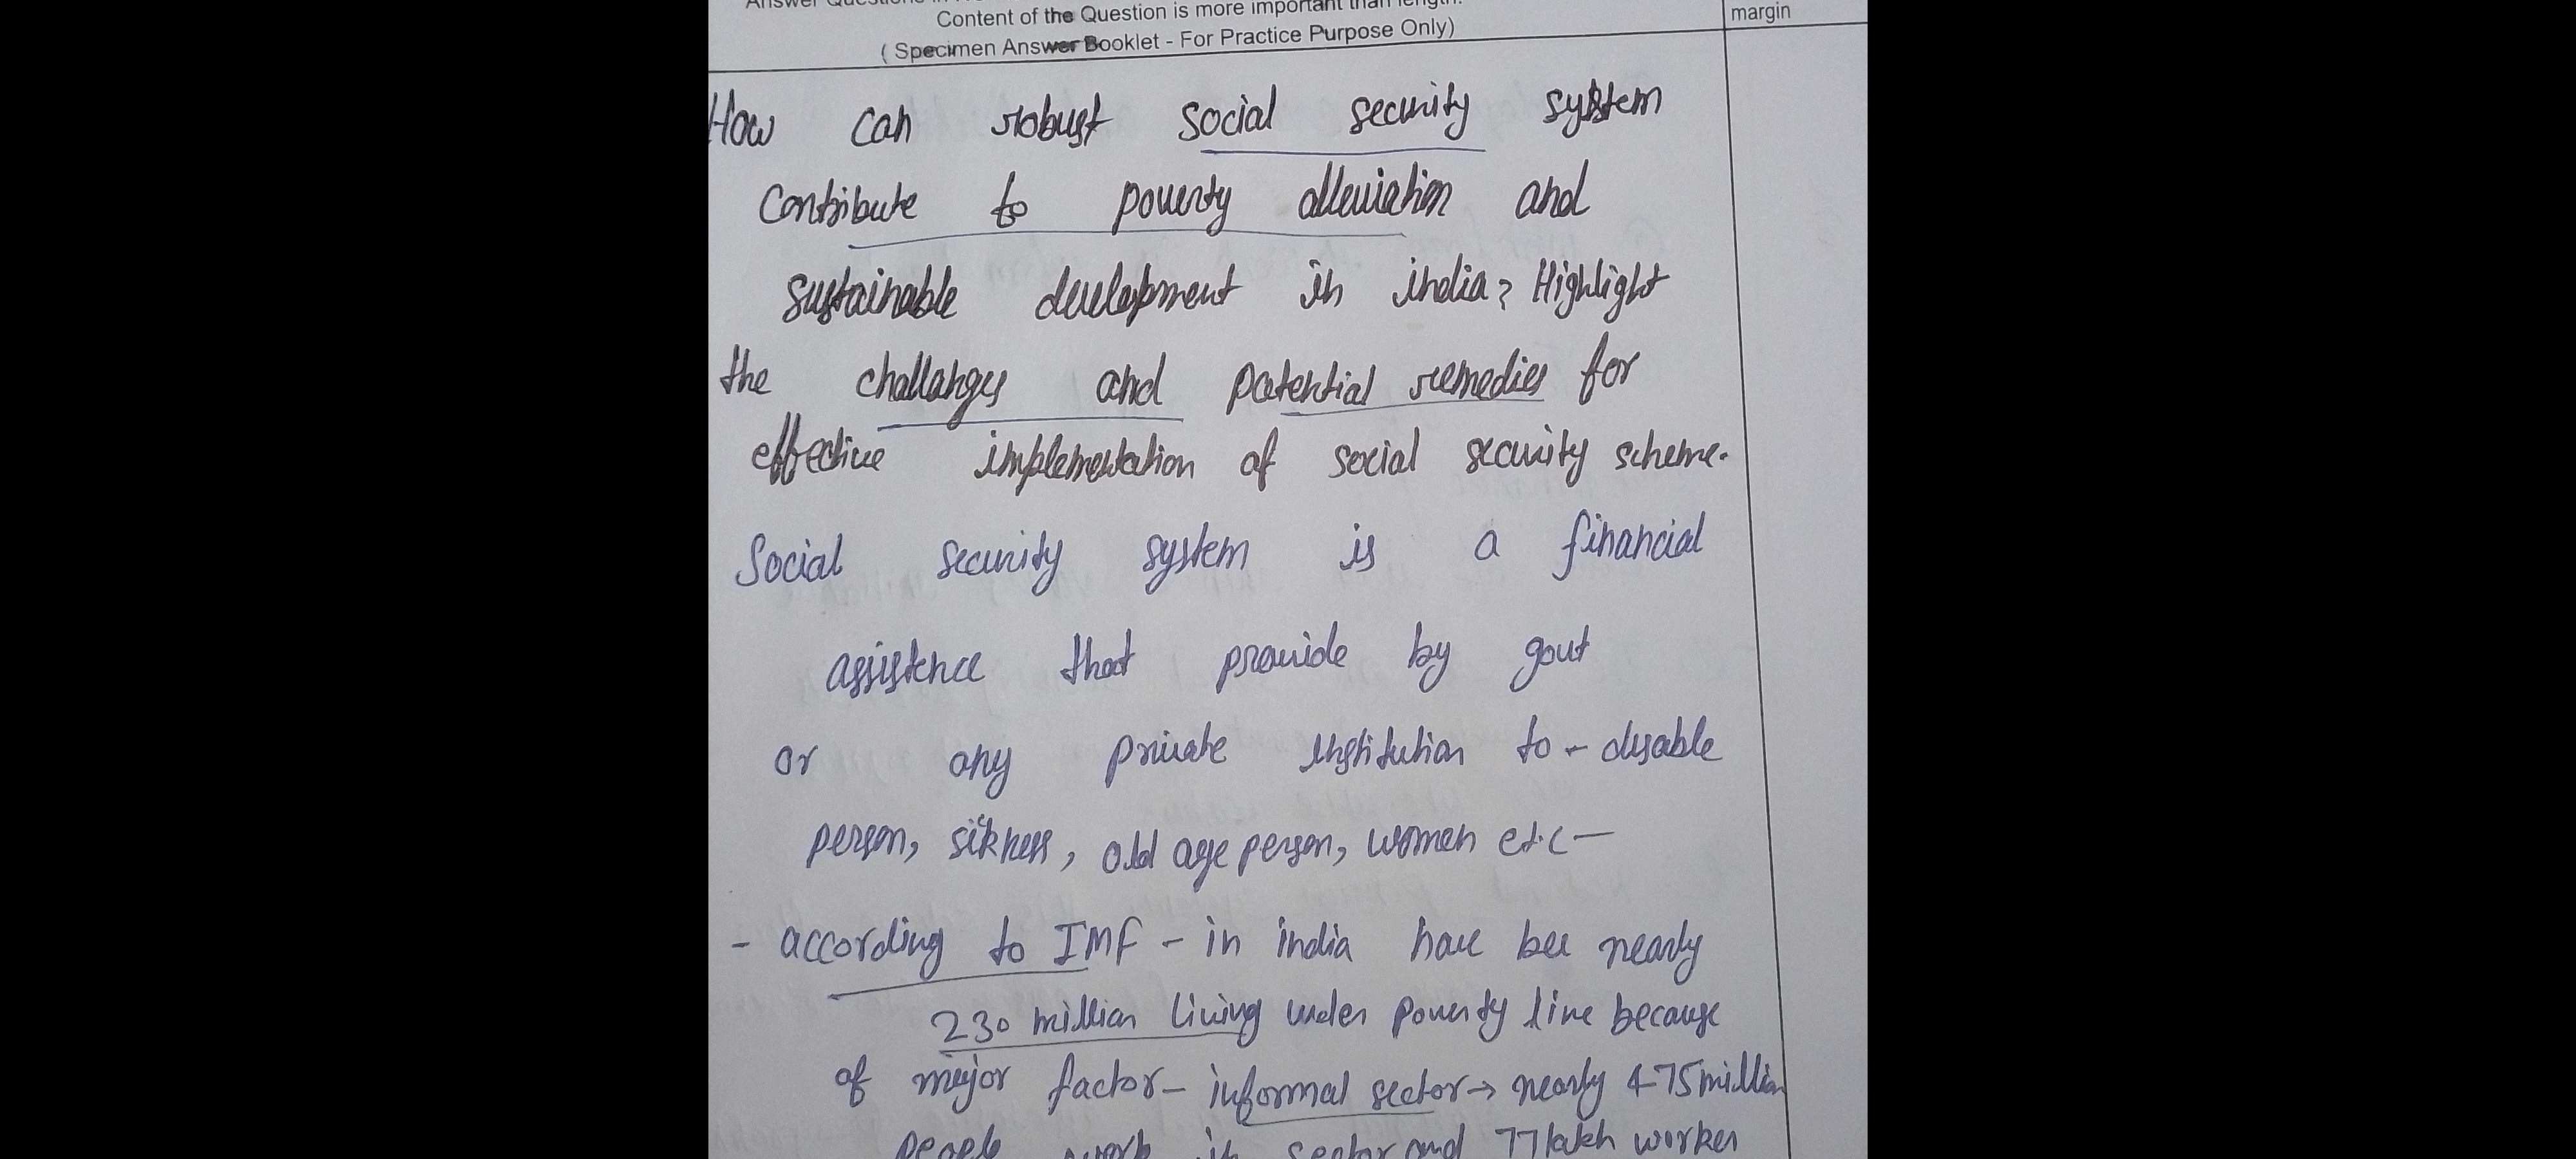 Content of the Question is more important than length.
margin
( Specimen Answer Booklet - For Practice Purpose Only)
How can robust social security system
contribute to poverty alleviation and
sustainable development in india? Highlight
the challanges and potential remedies for
effective implementation of social security scheme.
Social security system is a financial
assistence that provide by govt
or any private institution to - disable
person, sikness, old age person, women etc -
- according to IMF - in india have bee nearly
230 million living under poverty line because
of major factor - informal sector → nearly 475 million
people work in sector and 77 lakh worker